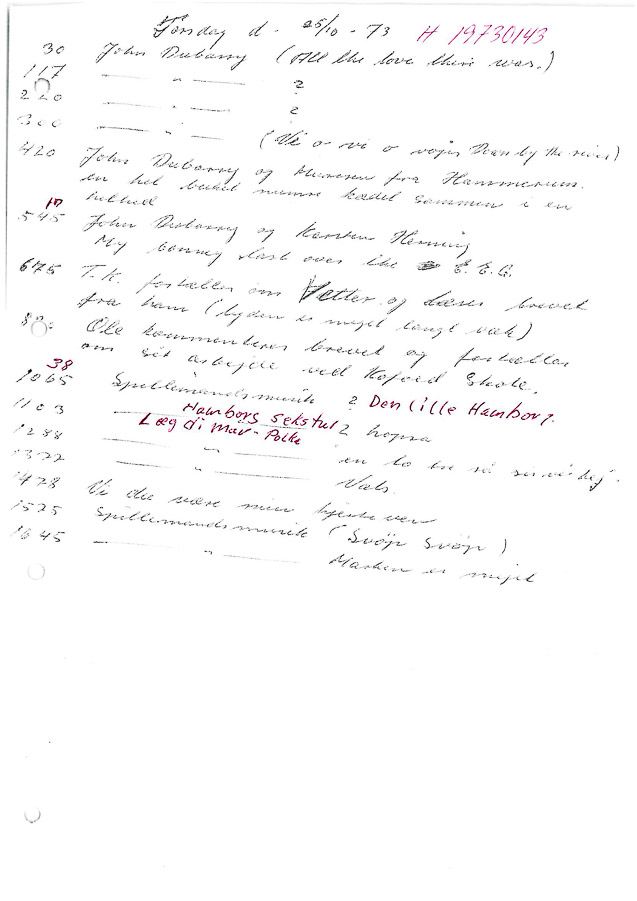 Torsdag d. 25/10 - 73 H 19730143
30 John Dubarry (All the love there was.)
117 — " — ?
220 — " — ?
300 — " — (Vi o vi o vajs Down by the river)
420 John Dubarry og fra Hammerum.
en hel numre kædet sammen i en
helhed
17
545 John Dubarry og Karsten Henning
My bonny last over like E.E.G.
675 T.K. fortæller om Petter og læser brevet
fra ham (lyden er meget langt væk)
Ole kommenterer brevet og fortæller
om sit arbejde ved Kofoed Skole.
38
1065 Spillemandsmusik ? Den lille Hamborg.
1103 Hamborg sekstur 2 hopsa
1288 Læg di mav - Polka
1377 — " — en to tre så
1428 — " — Vals.
Vi du være min hjerte ven
1525 Spillemandsmusik (Svøjp Svøjp)
1645 — " — Masken er meget